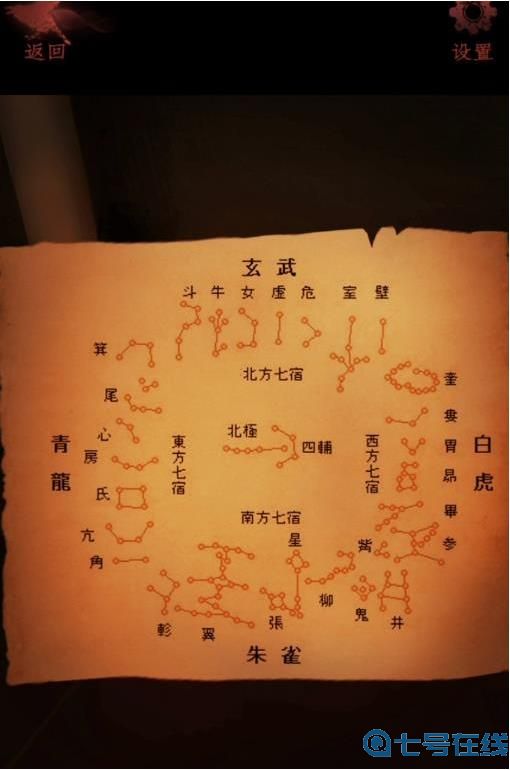 返回
设置
玄武
斗 牛 女 虚 危 室 壁
北方七宿
箕
尾
心
房
氏
亢
角
青龍
東方七宿
北極
四輔
西方七宿
奎
婁
胃
昴
畢
参
觜
白虎
南方七宿
星
軫
翼
張
柳
鬼
井
朱雀
七号在线